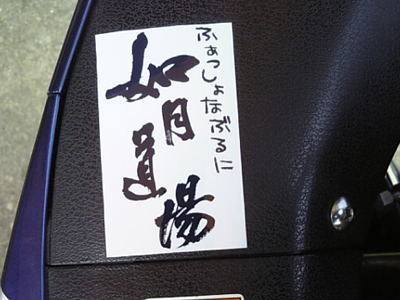 ふぁっしょなぶるに
如月道場